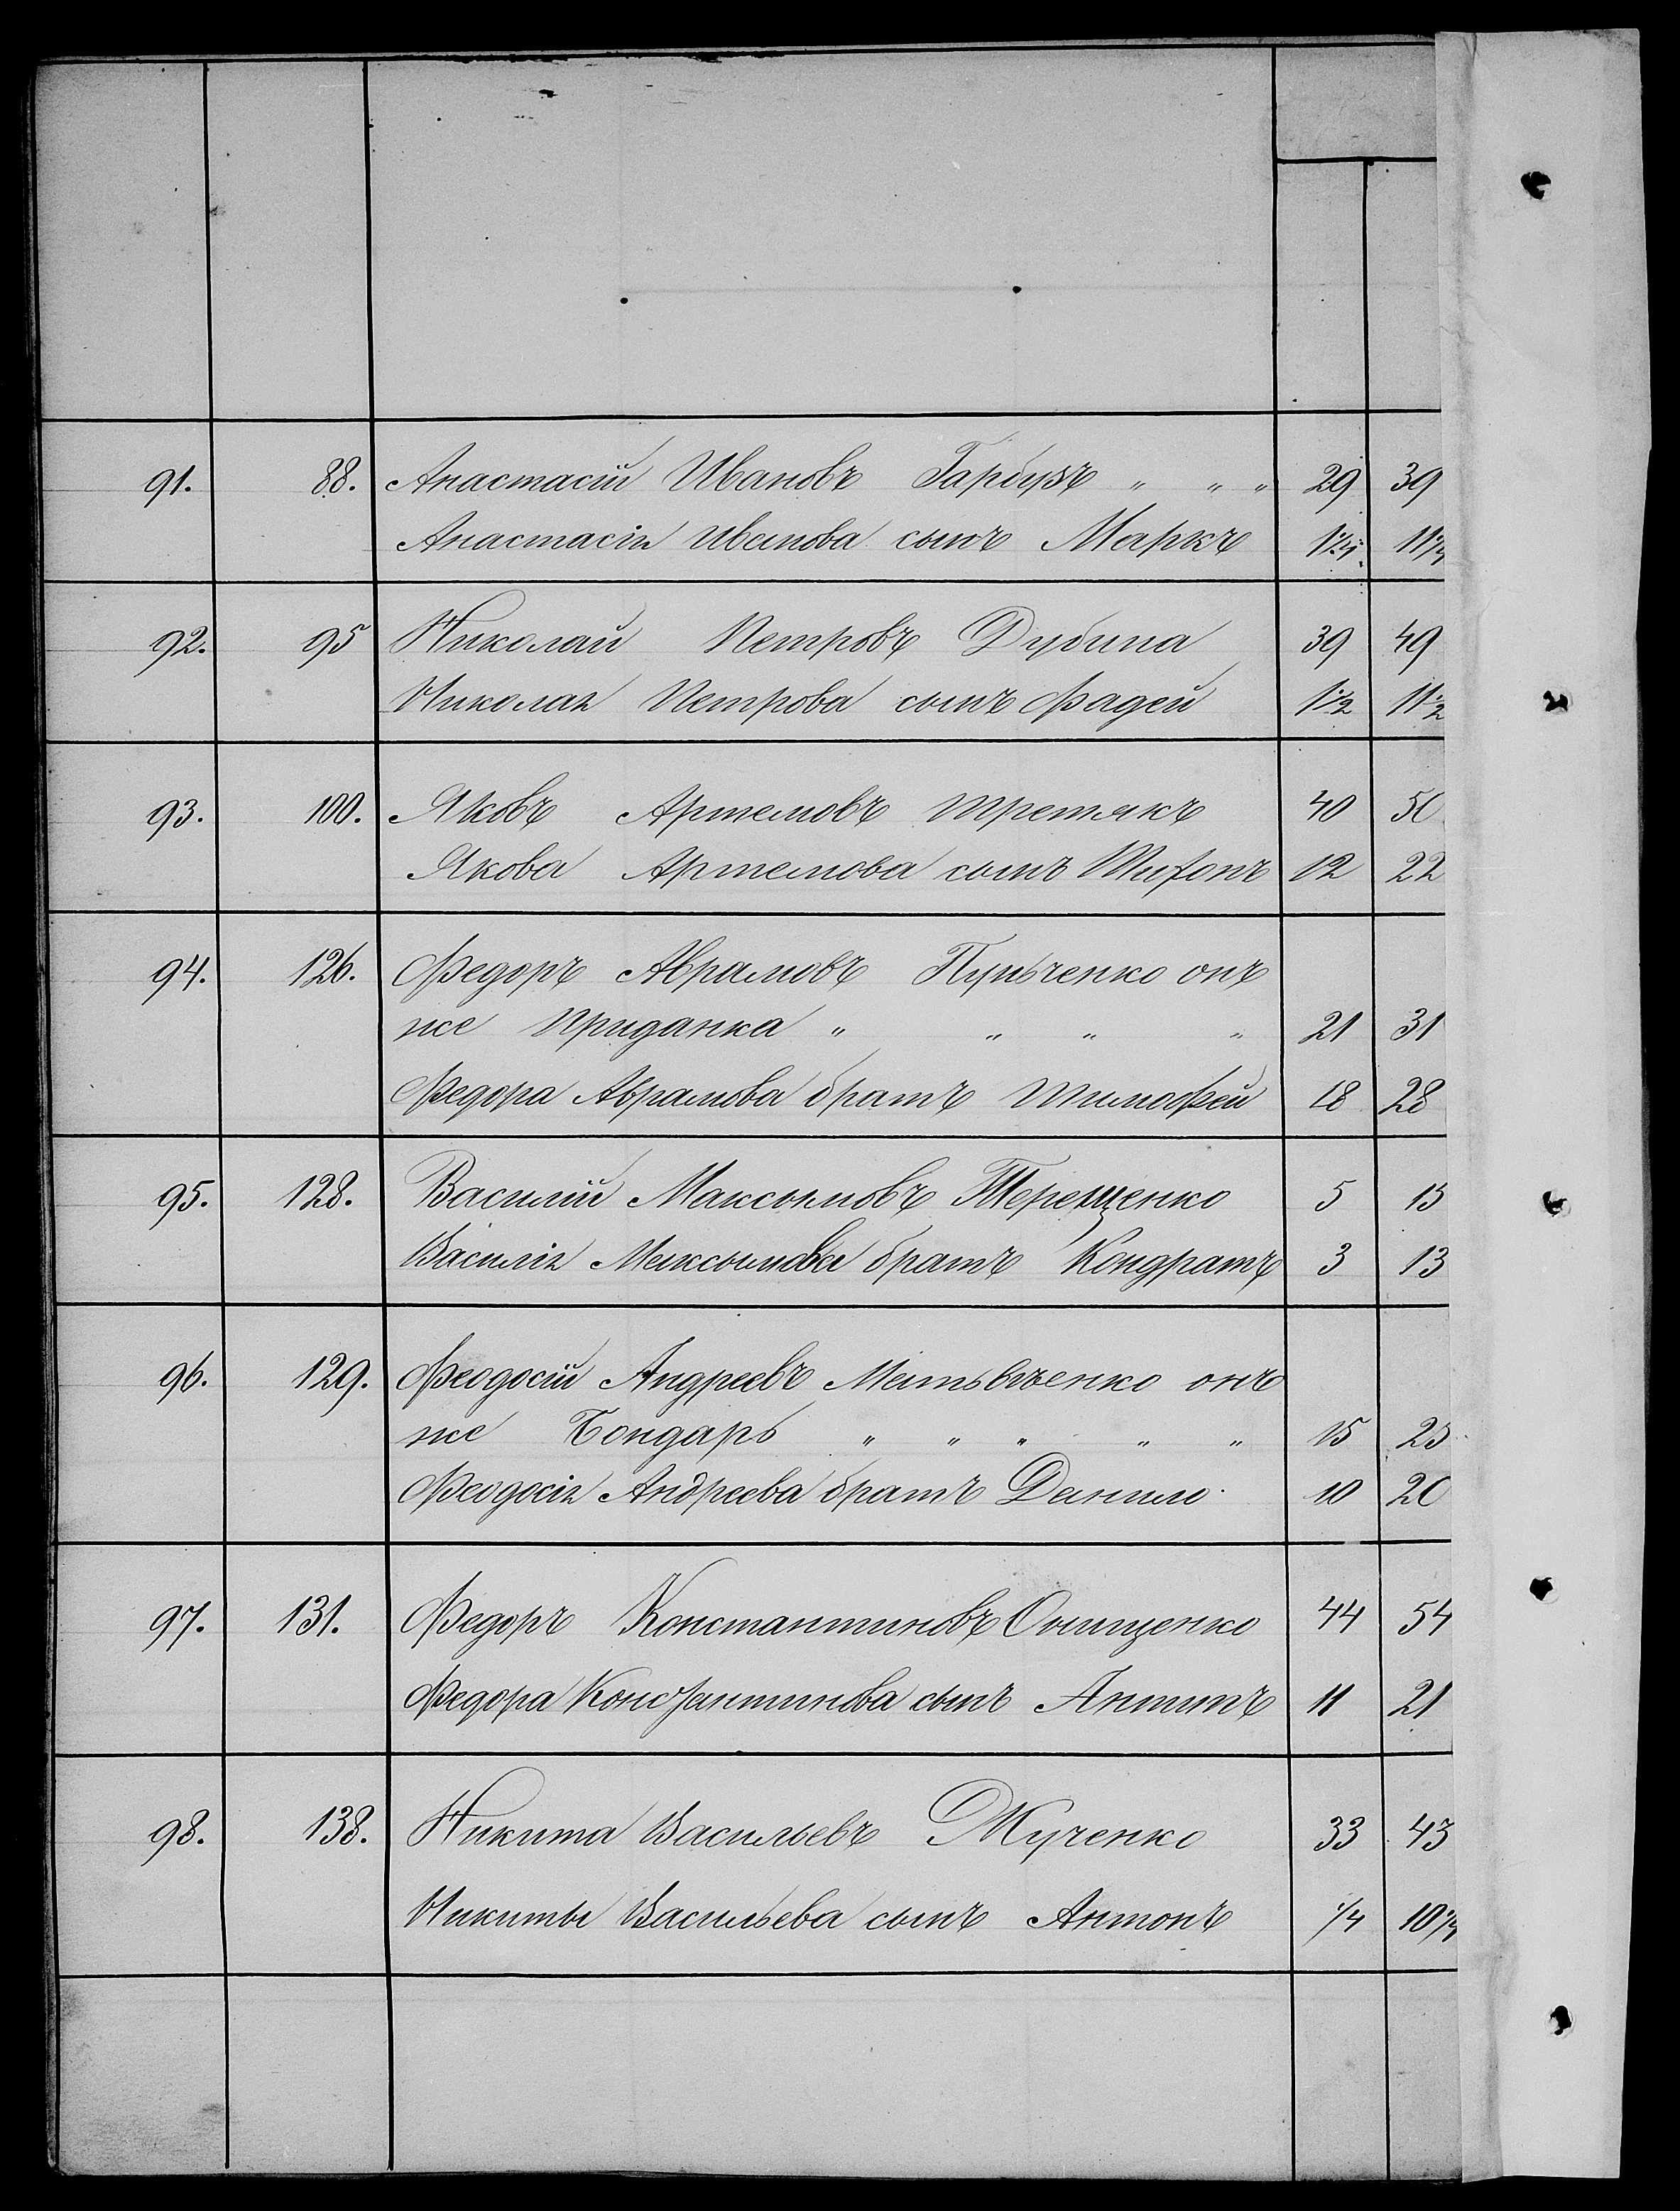 91. 88. Анастасій Ивановъ Гарбузъ " " " 29 39
Анастасія Иванова сынъ Маркъ 1 1/4 11 1/4
92. 95 Николай Петровъ Дубина 39 49
Николая Петрова сынъ Фадей 1 1/2 11 1/2
93. 100. Яковъ Артемовъ Третякъ 40 50
Якова Артемова сынъ Тихонъ 12 22
94. 126. Федоръ Аврамовъ Пунченко онъ
же Приданка " " " " 21 31
Федора Аврамова братъ Тимофей 18 28
95. 128. Василій Максимовъ Терещенко 5 15
Василія Максимова братъ Кондратъ 3 13
96. 129. Феодосій Андреевъ Матвѣенко онъ
же Бондарь " " " " " 15 25
Феодосія Андреева братъ Данило 10 20
97. 131. Федоръ Константиновъ Онищенко 44 54
Федора Константинова сынъ Антипъ 11 21
98. 138. Никита Васильевъ Жученко 33 43
Никиты Васильева сынъ Антонъ 1/4 10 1/4